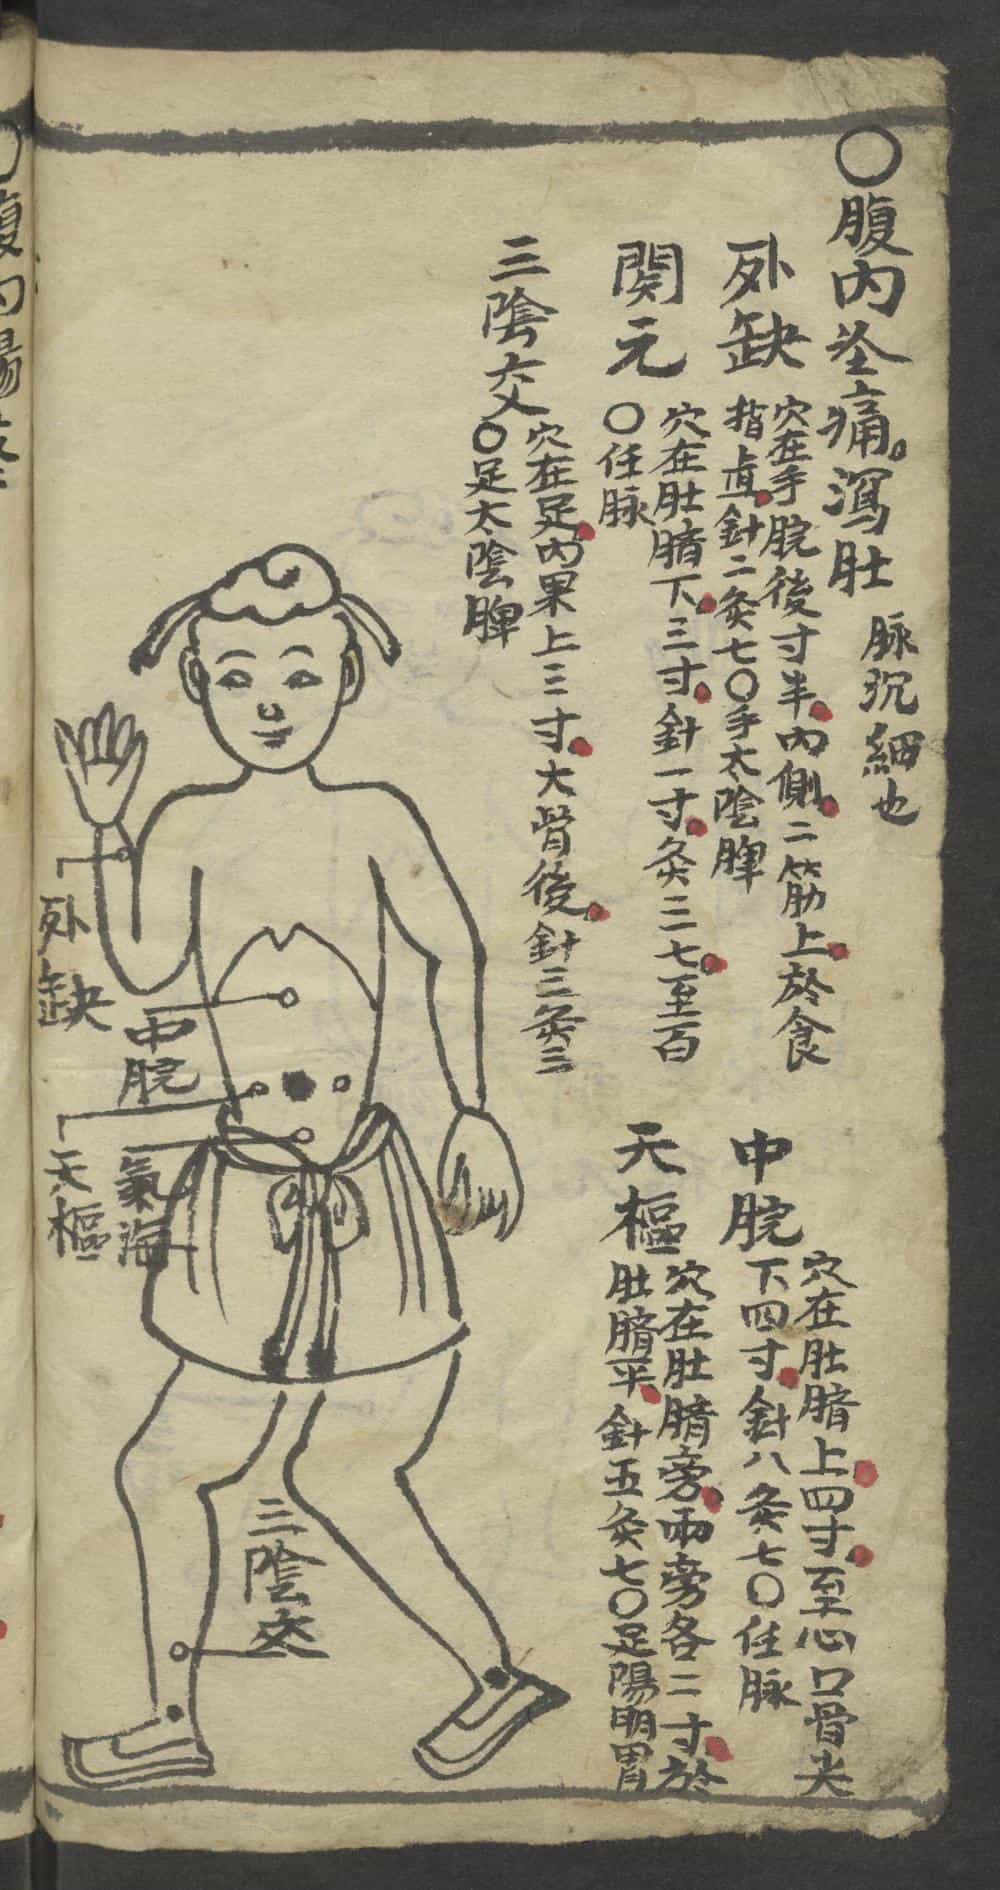 〇腹内坌痛。瀉肚
脉沉細也
夘缺
穴在手脘後寸半內側二筋上於食
指直針二灸七〇手太陰脾
関元
穴在肚臍下三寸針一寸灸二七至百
〇任脉
三陰交
穴在足內果上三寸大骨後針三灸三
〇足太陰脾
中脘
穴在肚臍上四寸至心口骨尖
下四寸針八灸七〇任脉
天樞
穴在肚臍旁兩旁各二寸於
肚臍平針五灸七〇足陽明胃
夘缺
中脘
氣海
天樞
三陰交
〇腹内